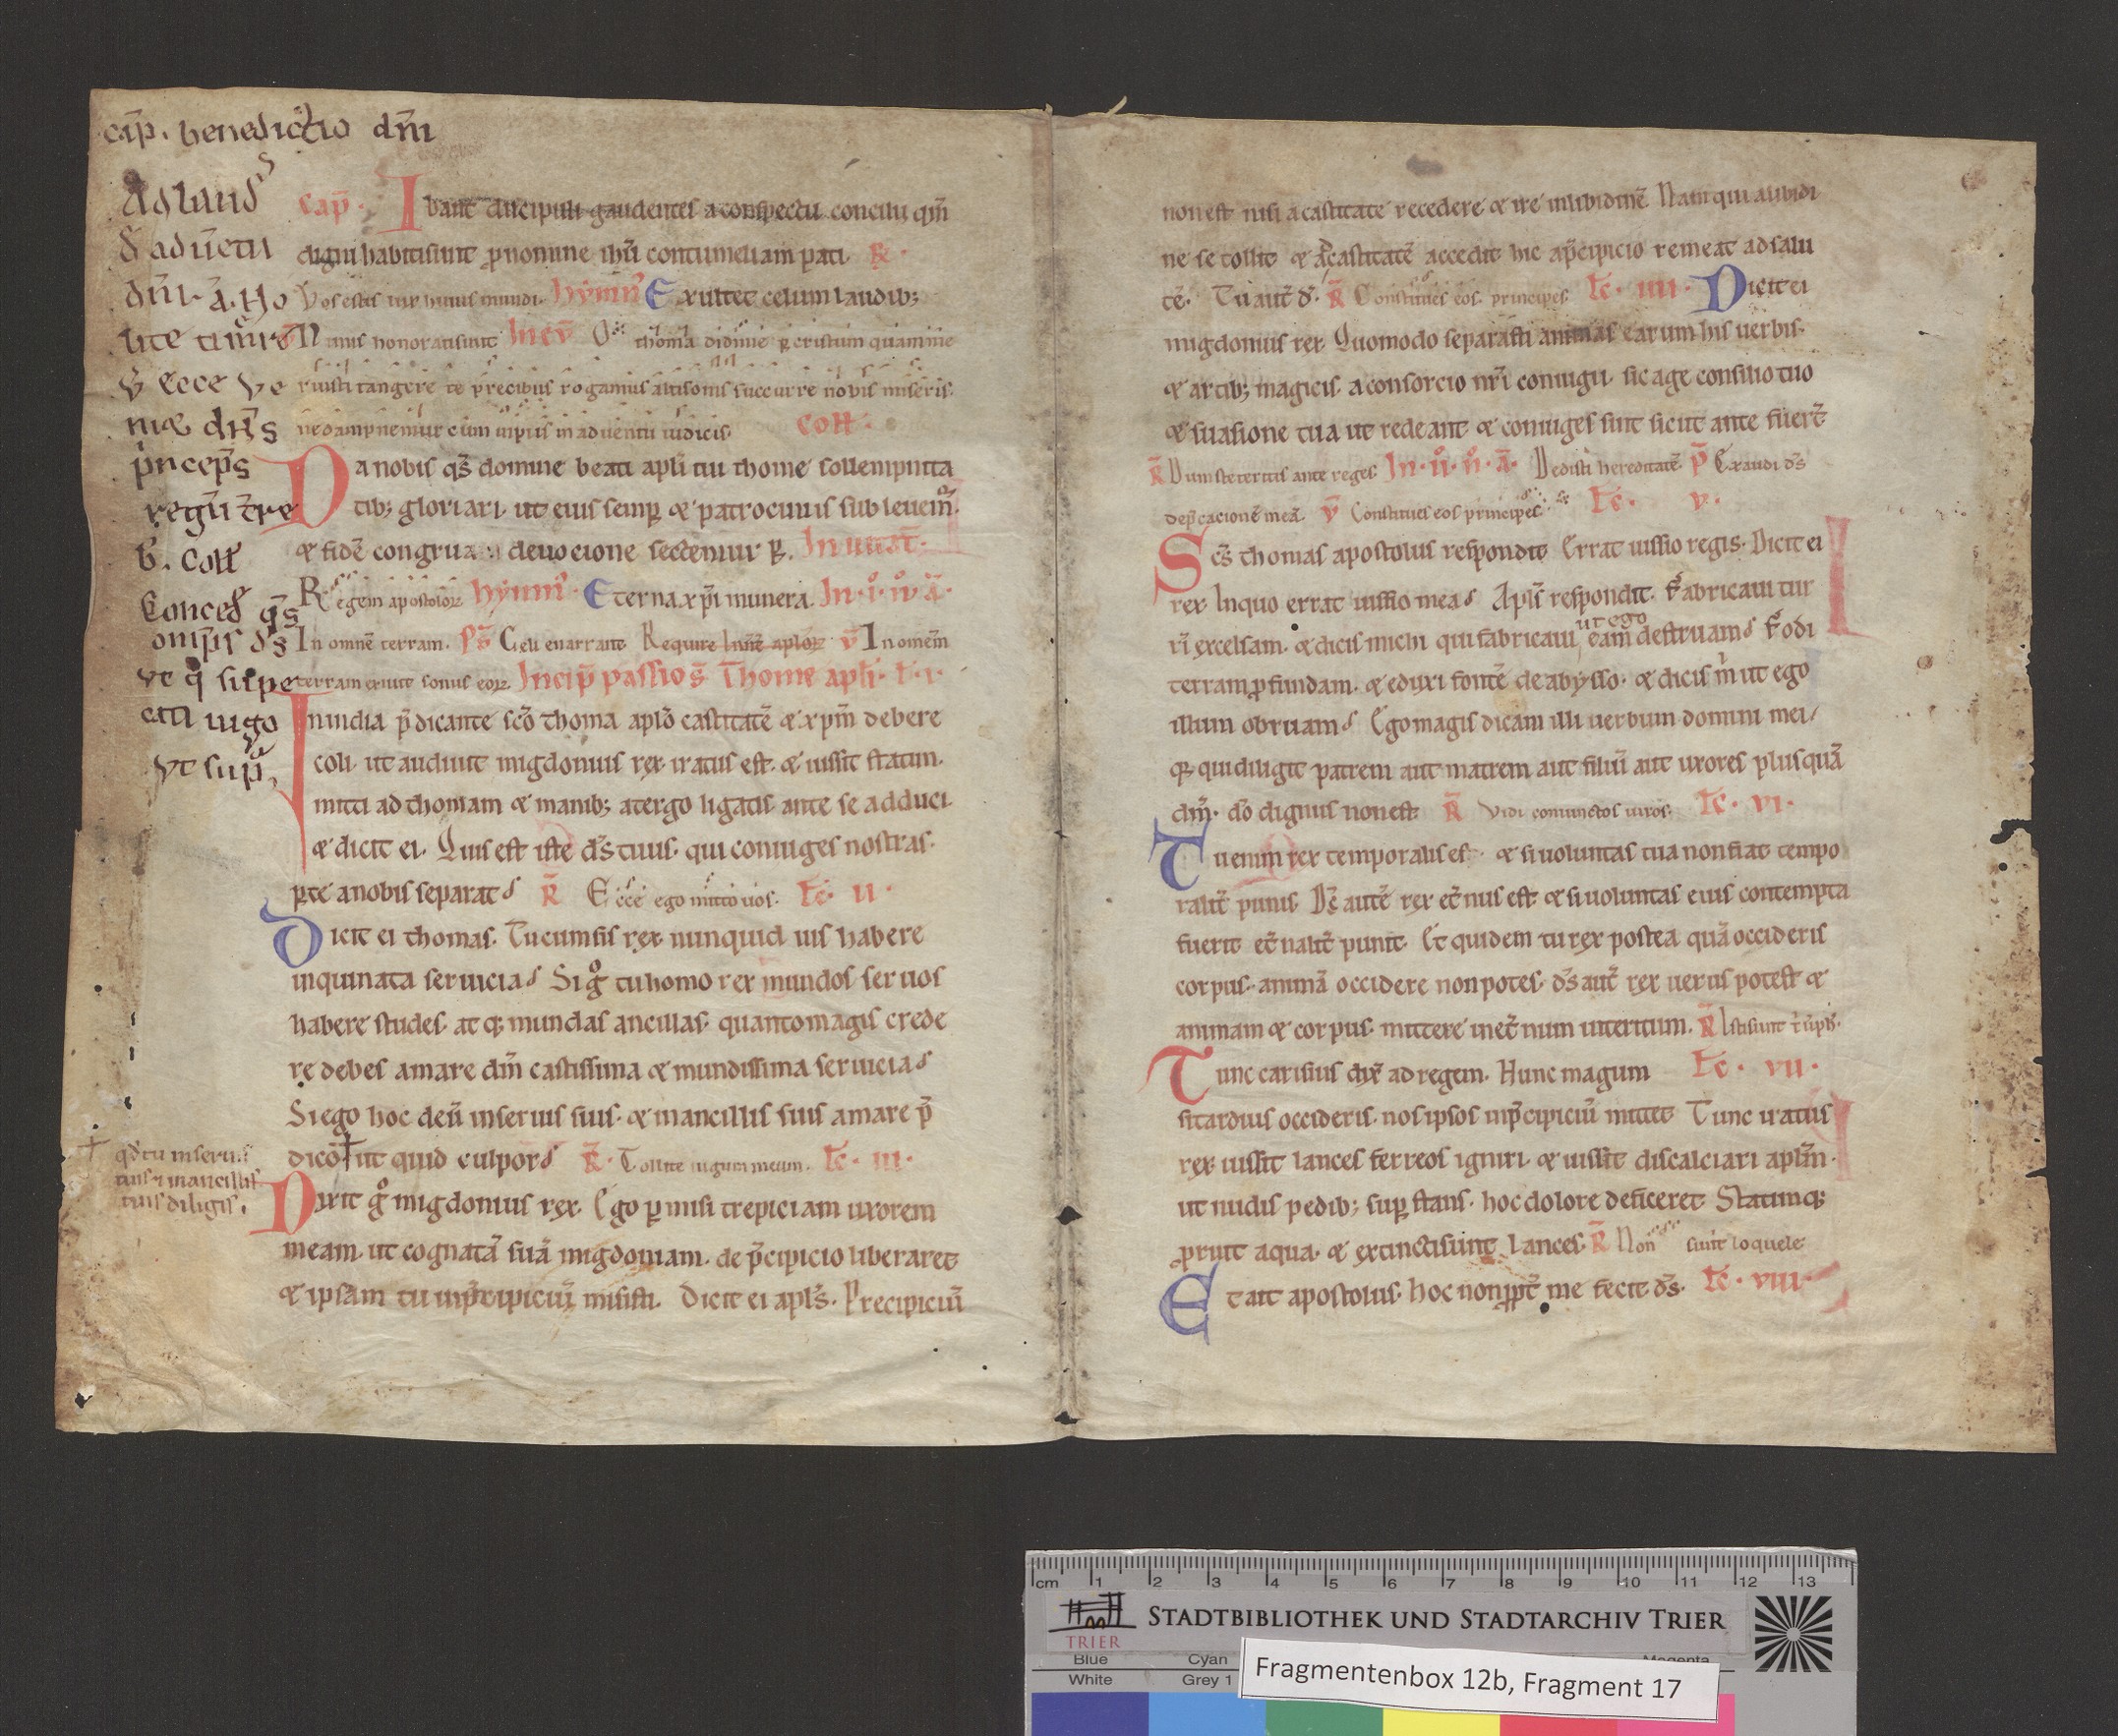 cap̄. benedictio dn̄i
Ad laud̄
d̄ adūetu
dn̄i. a. No
lite tim̄e
v̄ Ecce ve
niæ dn̄s
p̄nceps
regū t̄re
b. Coll
Conced̄ q̄s
om̄ps d̄s
vt q̄ sub pe
cati iugo
vt sup̄
Cap̄. Ibant discipuli gaudentes a conspectu concilii qm̄
digni habiti sunt ꝓ nomine ih̄u contumeliam pati. R̄.
Vos estis lux huius mundi. hymn᷒ Exultet celum laudib;
Nimis honorati sunt In ev̄ O thoma didime ꝑ cristum quem me
ruisti tangere te precibus rogamus altisonis succurre nobis miseris.
ne dampnemur cum impiis in adventu iudicis. Coll.
Da nobis q̄s domine beati apl̄i tui thome sollempnita
tib; gloriari. ut eius semꝑ & patrociniis subleuem᷒.
& fidē congrua deuocione sectemur ꝑ. Inuitat̄.
Regem apostoloꝝ hymn᷒. Eterna xp̄i munera. In. i. n̊. ā.
In omnē terram. ps̄ Celi enarrant. Require In nat̄ aploꝝ v̄ In omēm
terram exiuit sonus eoꝝ. Incip̄ passio s̄ Thome apl̄i. l̄. i.
In india p̄dicante sc̄o thoma aplō castitatē & xp̄m debere
coli. ut audiuit migdonius rex iratus est. & iussit statim.
mitti ad thomam & manib; a tergo ligatis. ante se adduci.
& dicit ei. Quis est iste d̄s tuus. qui coniuges nostras.
ꝑte a nobis separat R̄ Ecce ego mitto uos. Lc̄. ii.
Dicit ei thomas. Tu cum sis rex nunquid uis habere
inquinata seruicia Si g̊ tu homo rex mundos seruos
habere studes. atq; mundas ancillas. quanto magis crede
re debes amare dm̄ castissima & mundissima seruicia
Si ego hoc deū in seruis suis. & in ancillis suis amare p̄
dico † ut quid culpor R̄. Tollite iugum meum. Lc̄. iii.
† qd̄ tu in seruis
tuis & in ancillis
tuis diligis.
Dixit g̊ migdonius rex. Ego ꝑmisi trepiciam uxorem
meam. ut cognatā suā migdoniam. de p̄cipicio liberaret
& ipsam tu in p̄cipiciū misisti. Dicit ei apl̄s. Precipiciū
non est nisi a castitate recedere & ire in libidinē Nam qui a libidi
ne se tollit & ad castitatē accedit hic a p̄cipicio remeat ad salu
tē. Tu aut̄ d̄. R̄ Constitues eos principes. Lc̄. iiii. Dicit ei
migdonius rex Quomodo separasti animas earum his uerbis.
& artib; magicis. a consorcio nr̄i coniugii. sic age consilio tuo
& suasione tua ut redeant & coniuges sint sicut ante fuert̄
R̄ Dum steteritis ante reges In. ii. n̊. ā. Dedisti hereditatē. p̄ Exaudi d̄s
dep̄cacionē meā. v̄ Constitues eos principes. Lc̄. v.
Sc̄s thomas apostolus respondit Errat iussio regis. Dicit ei
rex In quo errat iussio mea Apl̄s respondit. Fabricaui tur
rī excelsam. & dicis michi qui fabricaui ut ego eam destruam Fodi
terram ꝓfundam. & eduxi fontē de abysso. & dicis m̄ ut ego
illum obruam Ego magis dicam illi uerbum domini mei/
qꝫ qui diligit patrem aut matrem aut filiū aut uxores plusquā
dm̄. dō dignus non est R̄ Vidi coniunctos uiros. Lc̄. vi.
Tu enim rex temporalis es. & si uoluntas tua non fiat tempo
ralit̄ punis. Ds̄ autē rex et̄nus est & si uoluntas eius contempta
fuerit et̄nalit̄ punit. Et quidem tu rex postea quā occideris
corpus. animā occidere non potes. d̄s aut̄ rex uerus potest &
animam & corpus. mittere in et̄num interitum. R̄ Isti sunt t̄ump̄.
Tunc carisius dix̄ ad regem. Hunc magum Lc̄. vii.
si tardius occideris. nos ipsos in p̄cipiciū mittet Tunc iratus
rex iussit lances ferreos igniri. & iussit discalciari aplm̄.
ut nudis pedib; suꝑ stans. hoc dolore deficeret Statimq;
ꝓruit aqua. & extincti sunt lances. R̄ Non sunt loquele
Et ait apostolus. hoc non ꝓpt̄ me fecit d̄s. Lc̄. viii.
cm 1 2 3 4 5 6 7 8 9 10 11 12 13
TRIER
STADTBIBLIOTHEK UND STADTARCHIV TRIER
Blue Cyan Magenta
White Grey 1
Fragmentenbox 12b, Fragment 17